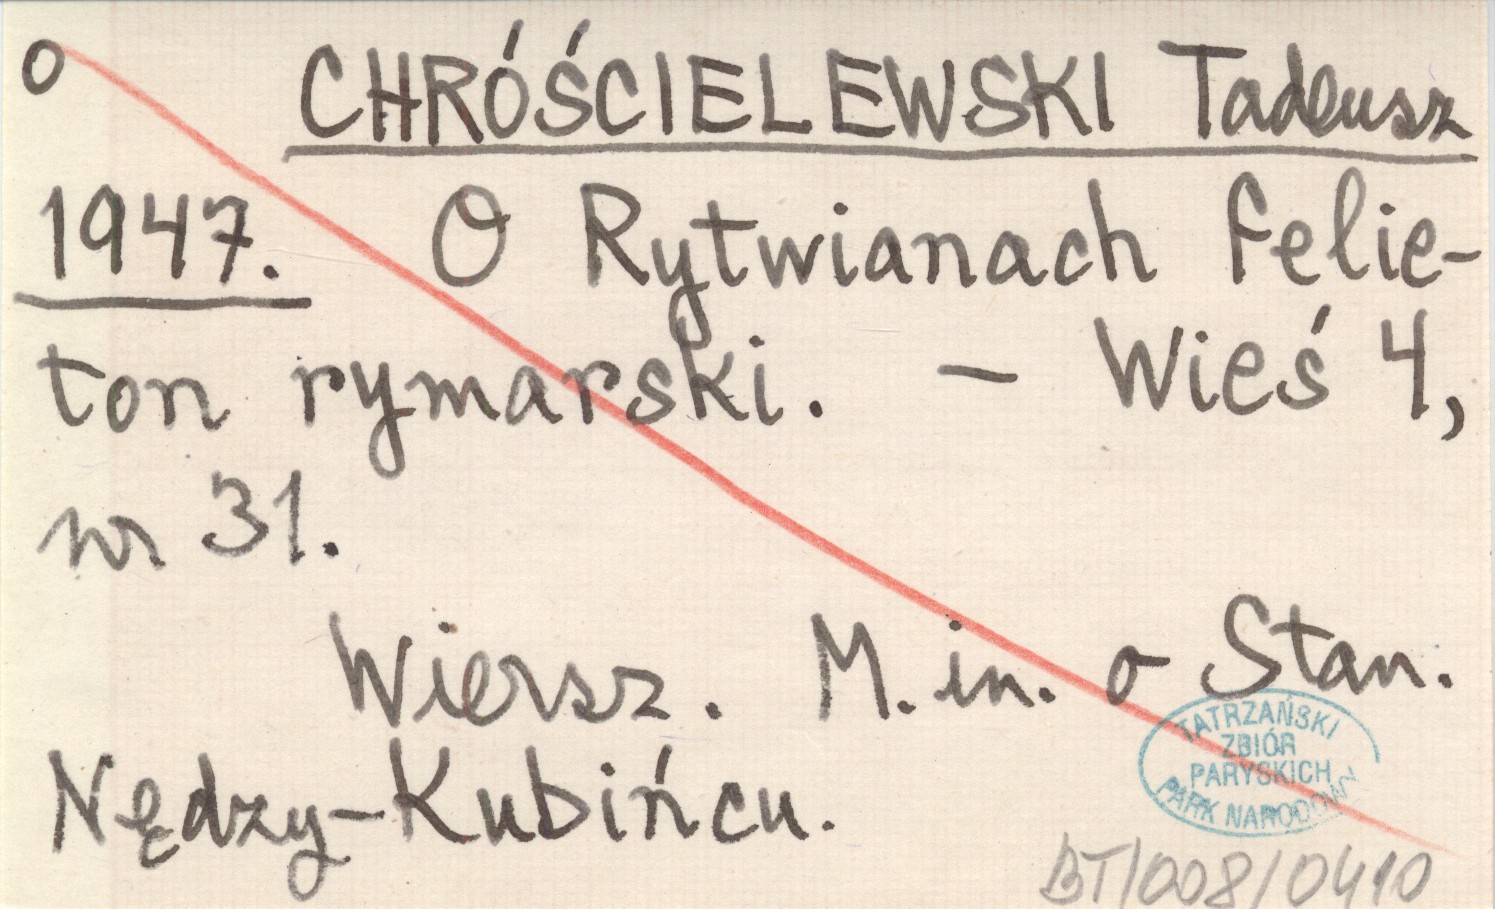 o CHRÓŚCIELEWSKI Tadeusz
1947. O Rytwianach felie-
ton rymarski. – Wieś 4,
nr 31.
Wiersz. M. in. o Stan.
Nędzy-Kubińcu.
TATRZAŃSKI
ZBIÓR
PARYSKICH
PARK NARODOWY
BT/008/0410